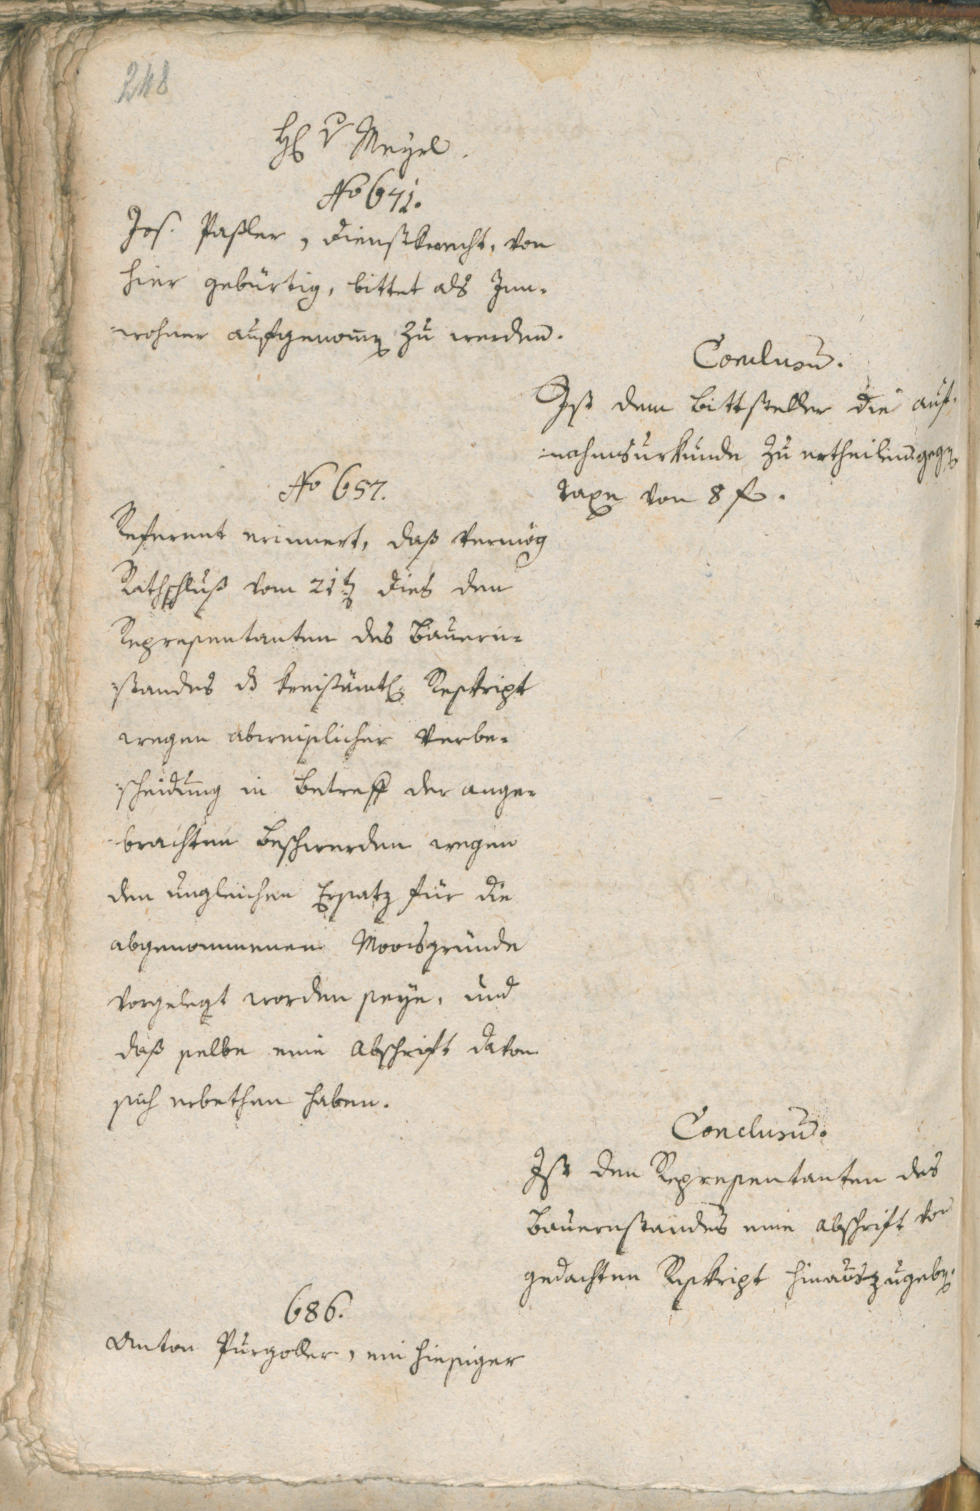 248
H v Mayrl.
No 641.
Jos. Paßler, Dienstknecht, von
hier gebürtig, bittet als Inn-
wohner aufgenom̄en zu werden.
Conclusū.
Ist dem Bittsteller die auf-
nahmsurkunde zu ertheilen gegen
Taxe von 8 f.
No 657.
Referent erinnert, daß vermög
Rathschluß vom 21t dies den
Representanten des Bauern-
standes d kreisämtl. Reskript
wegen abweislicher Verbe-
scheidung in Betreff der ange-
brachten Beschwerden wegen
den ungleichen Ersatz für die
abgenommenen Moosgründe
vorgelegt worden seye, und
daß selbe eine Abschrift davon
sich erbethen haben.
Conclusū.
Ist den Representanten des
Bauernstandes eine Abschrift von
gedachten Reskript hinauszugeben.
686.
Anton Purgoller, ein hiesiger